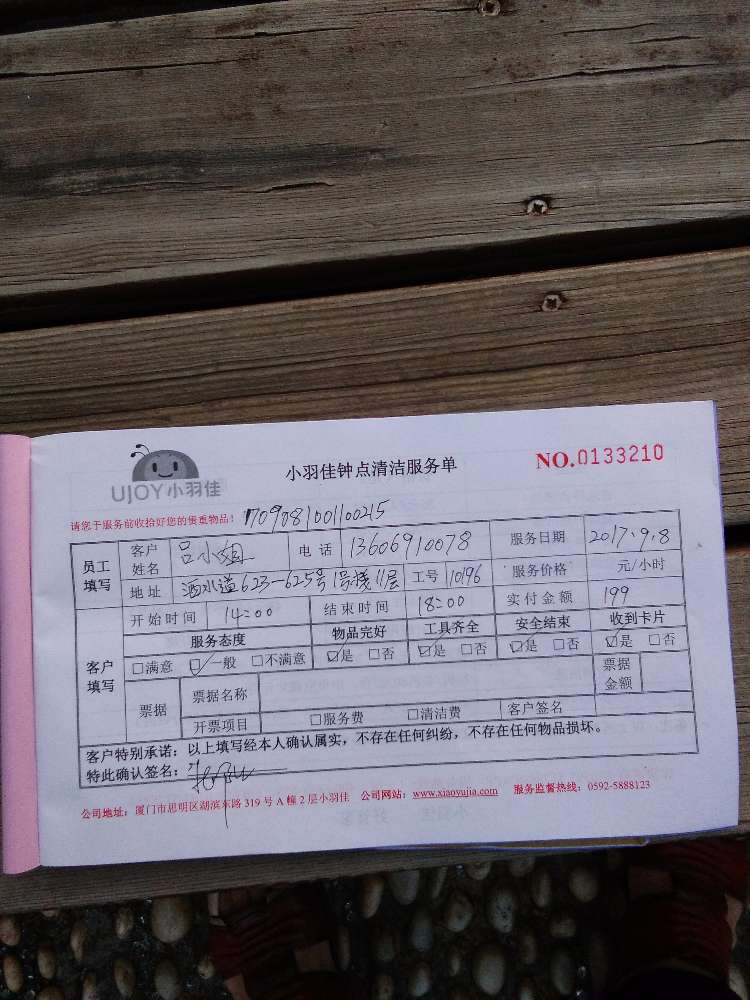 UJOY小羽佳
小羽佳钟点清洁服务单
NO.0133210
请您于服务前收拾好您的贵重物品! 170908100110215
员工填写 客户姓名 吕小姐 电话 13606910078 服务日期 2017.9.8
地址 洒水道623-625号1号梯11层 工号 10196 服务价格 元/小时
开始时间 14:00 结束时间 18:00 实付金额 199
客户填写 服务态度 物品完好 工具齐全 安全结束 收到卡片
□满意 ☑一般 □不满意 ☑是 □否 ☑是 □否 ☑是 □否 ☑是 □否
票据 票据名称 票据金额
开票项目 □服务费 □清洁费 客户签名
客户特别承诺:以上填写经本人确认属实,不存在任何纠纷,不存在任何物品损坏。
特此确认签名:
公司地址:厦门市思明区湖滨东路319号A幢2层小羽佳 公司网站:www.xiaoyujia.com 服务监督热线:0592-5888123